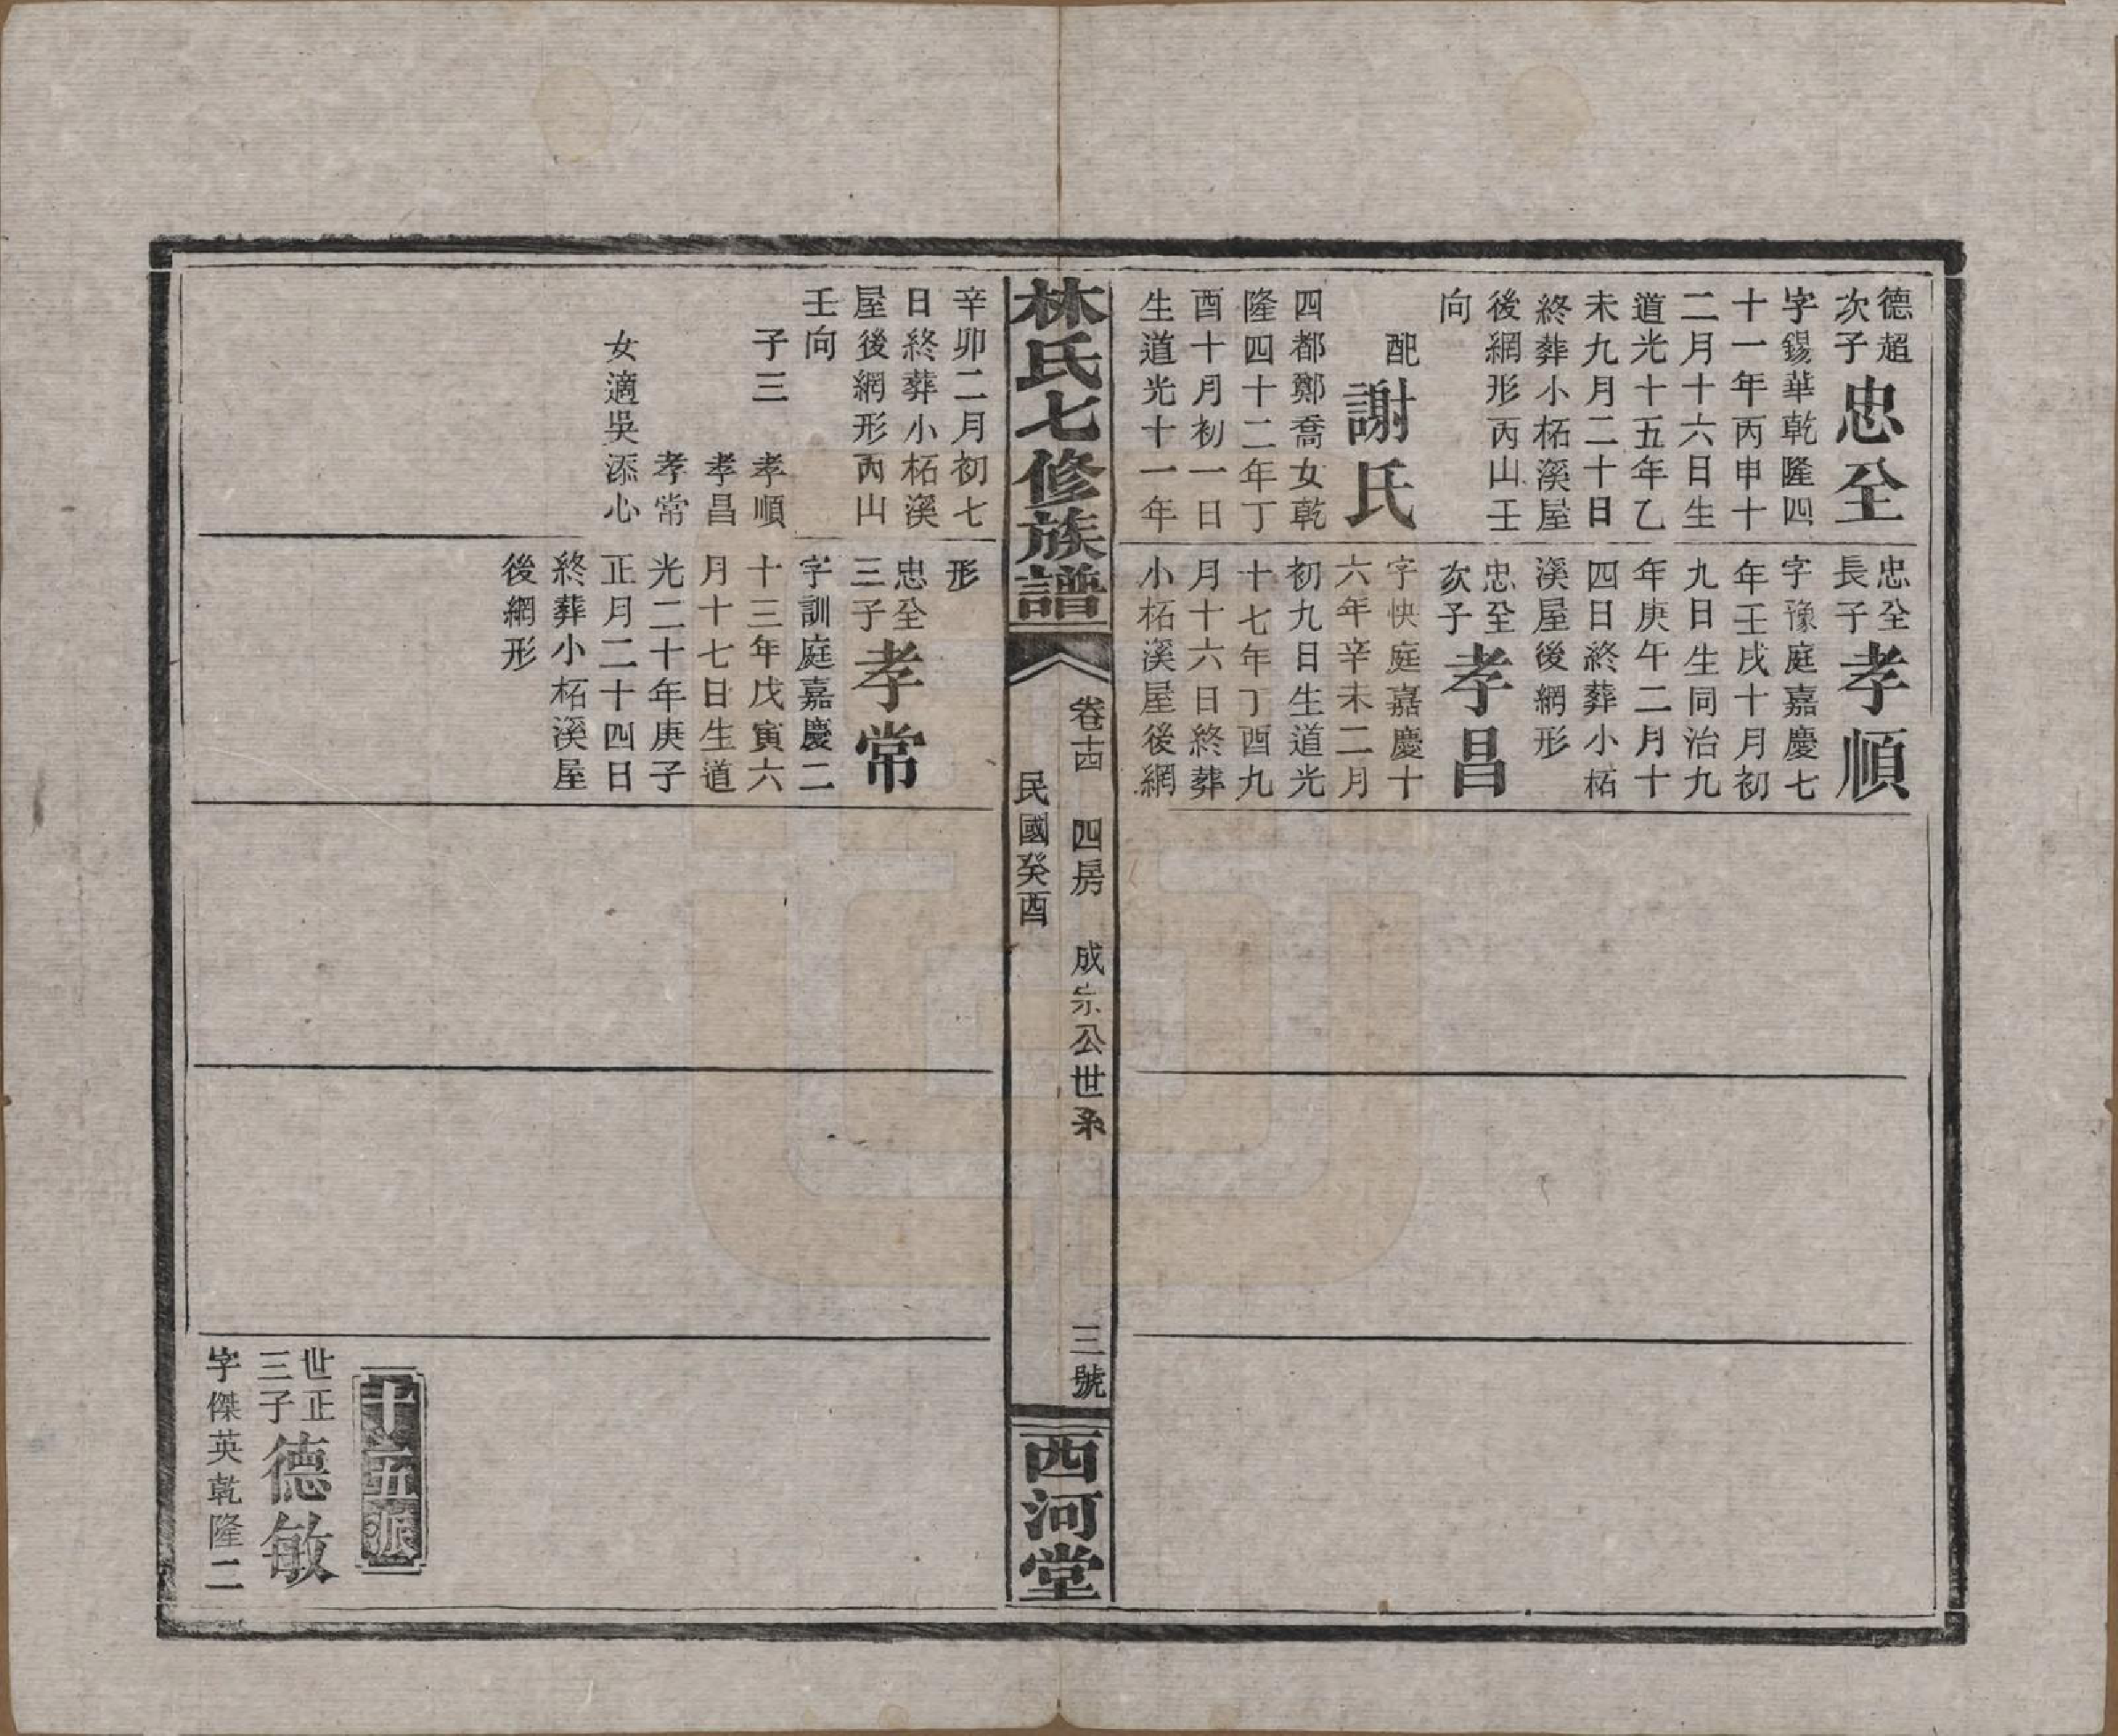 德超
次子
忠全
字錫華乾隆四
十一年丙申十
二月十六日生
道光十五年乙
未九月二十日
終葬小柘溪屋
後網形丙山壬
向
配
謝氏
四都鄭喬女乾
隆四十二年丁
酉十月初一日
生道光十一年
忠全
長子
孝順
字豫庭嘉慶七
年壬戌十月初
九日生同治九
年庚午二月十
四日終葬小柘
溪屋後網形
忠全
次子
孝昌
字快庭嘉慶十
六年辛未二月
初九日生道光
十七年丁酉九
月十六日終葬
小柘溪屋後網
林氏七修族譜
卷十四 四房 成宗公世系 三號
民國癸酉
西河堂
辛卯二月初七
日終葬小柘溪
屋後網形丙山
壬向
子三 孝順
孝昌
孝常
女適吳添心
形
忠全
三子
孝常
字訓庭嘉慶二
十三年戊寅六
月十七日生道
光二十年庚子
正月二十四日
終葬小柘溪屋
後網形
十五派
世正
三子
德敏
字傑英乾隆二